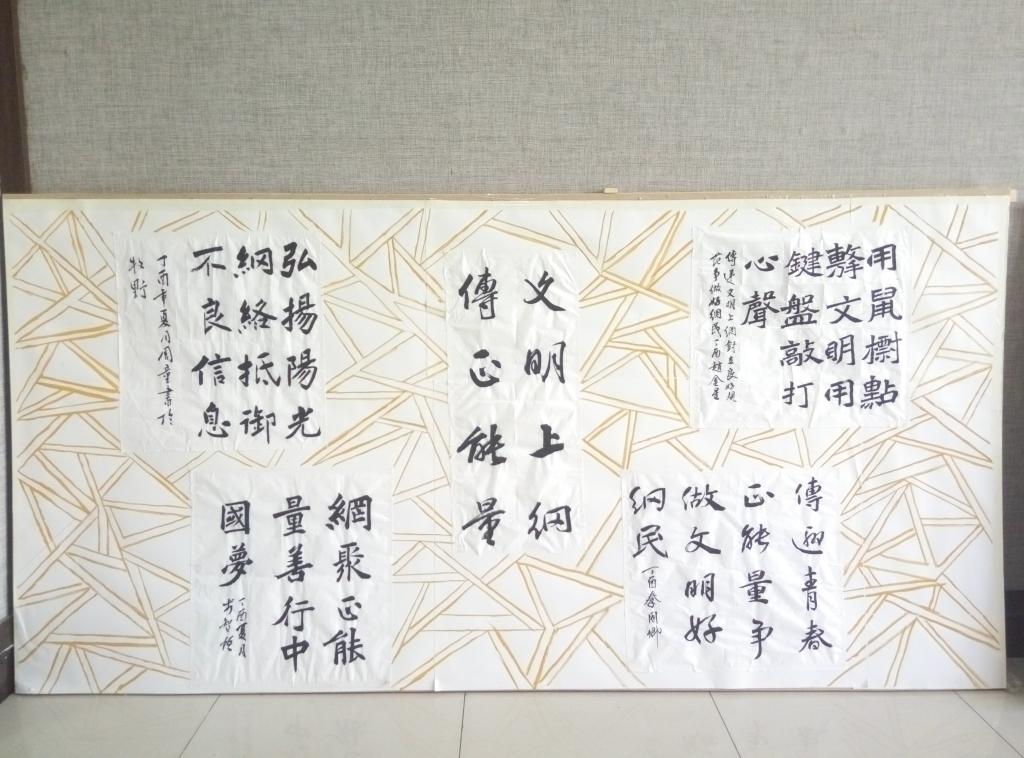 用鼠標點
擊文明用
鍵盤敲打
心聲
傳遞文明上網
做好網民丁酉趙金星
文明上網
傳正能量
弘揚陽光
網絡抵御
不良信息
丁酉年夏月周章書於
牧野
傳遞青春
正能量争
做文明好
網民
丁酉
網聚正能
量善行中
國夢
丁酉夏月